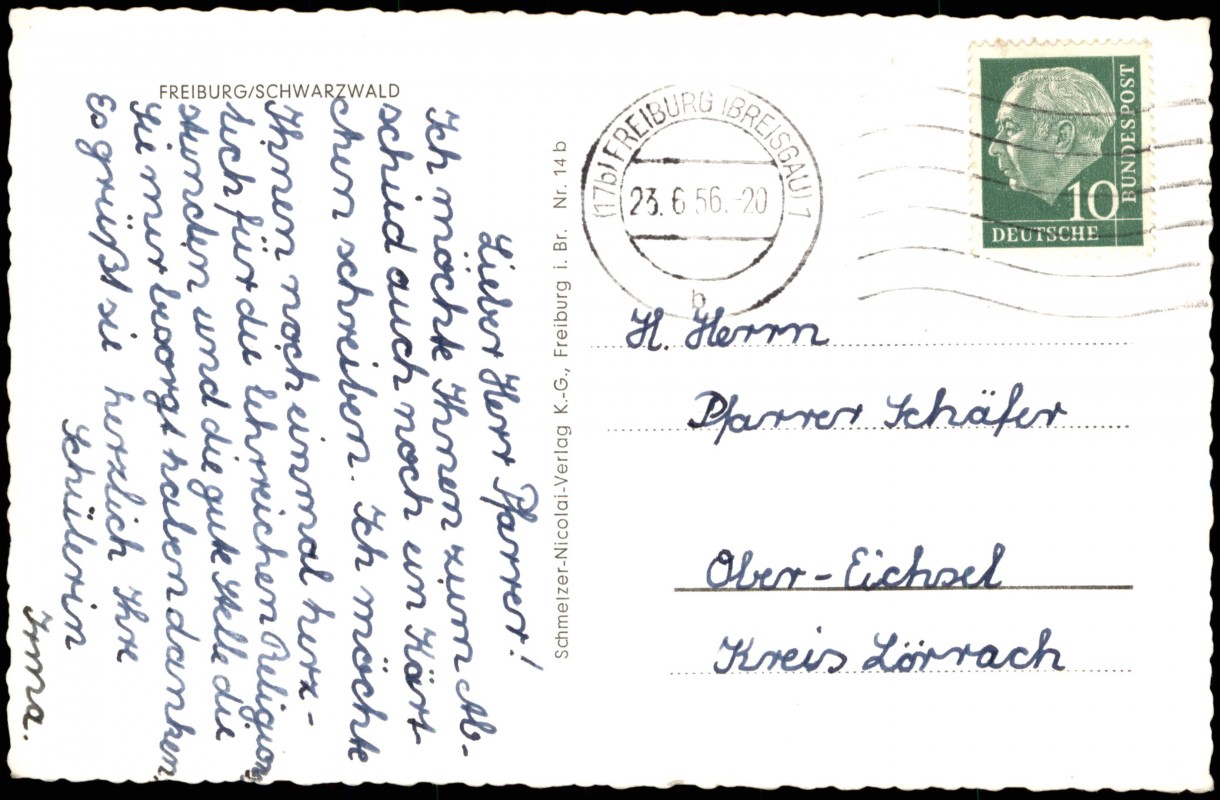 FREIBURG/SCHWARZWALD
Lieber Herr Pfarrer!
Ich möchte Ihnen zum Ab-
schied auch noch ein Kärt-
chen schreiben. Ich möchte
Ihnen noch einmal herz-
lich für die lehrreichen Religions
stunden und die gute Stelle die
Sie mir besorgt haben danken.
Es grüßt sie herzlich Ihre
Schülerin
Irma.
Schmelzer-Nicolai-Verlag K.-G., Freiburg i. Br. Nr. 14 b
(17b) FREIBURG (BREISGAU) 1
23.6.56.-20
b
BUNDESPOST
10
DEUTSCHE
H. Herrn
Pfarrer Schäfer
Ober-Eichsel
Kreis Lörrach